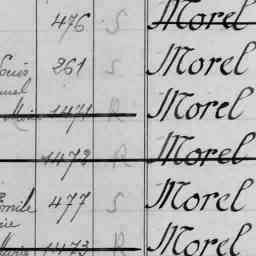 476 S Morel
Louis 261 S Morel
Marie 1471 R Morel
1472 R Morel
Emile 477 S Morel
Marie 1473 R Morel